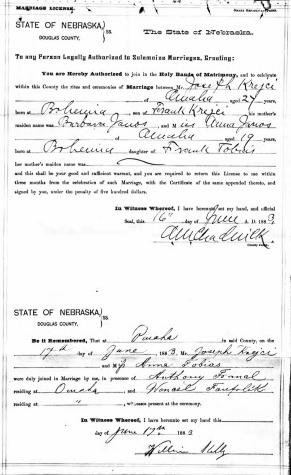 MARRIAGE LICENSE.
STATE OF NEBRASKA, } ss. The State of Nebraska.
DOUGLAS COUNTY.
To any Person Legally Authorized to Solemnize Marriages, Greeting:
You are Hereby Authorized to join in the Holy Bands of Matrimony, and to celebrate
within this County the rites and ceremonies of Marriage between Mr Joseph Krejci
of Omaha aged 24 years,
born at Bohemia, son of Frank Krejci his mother's
maiden name was Barbara Janos, and M iss Anna
of Omaha aged 19 years,
born at Bohemia daughter of Frank Tobias
her mother's maiden name was
and this shall be your good and sufficient warrant, and you are required to return this License to me within
three months from the celebration of such Marriage, with the Certificate of the same appended thereto, and
signed by you, under the penalty of five hundred dollars.
In Witness Whereof, I have hereunto set my hand, and official
Seal, this 16" day of June A. D. 1883
County
STATE OF NEBRASKA } ss.
DOUGLAS COUNTY,
Be it Remembered, That at Omaha in said County, on the
17th day of June, 1883, Mr. Joseph Krejci
and M Anna Tobias
were duly joined in Marriage by me, in presence of Anthony
residing at Omaha and
residing at " , witnesses present at the ceremony.
In Witness Whereof, I have hereunto set my hand this
day of June 17th 1883